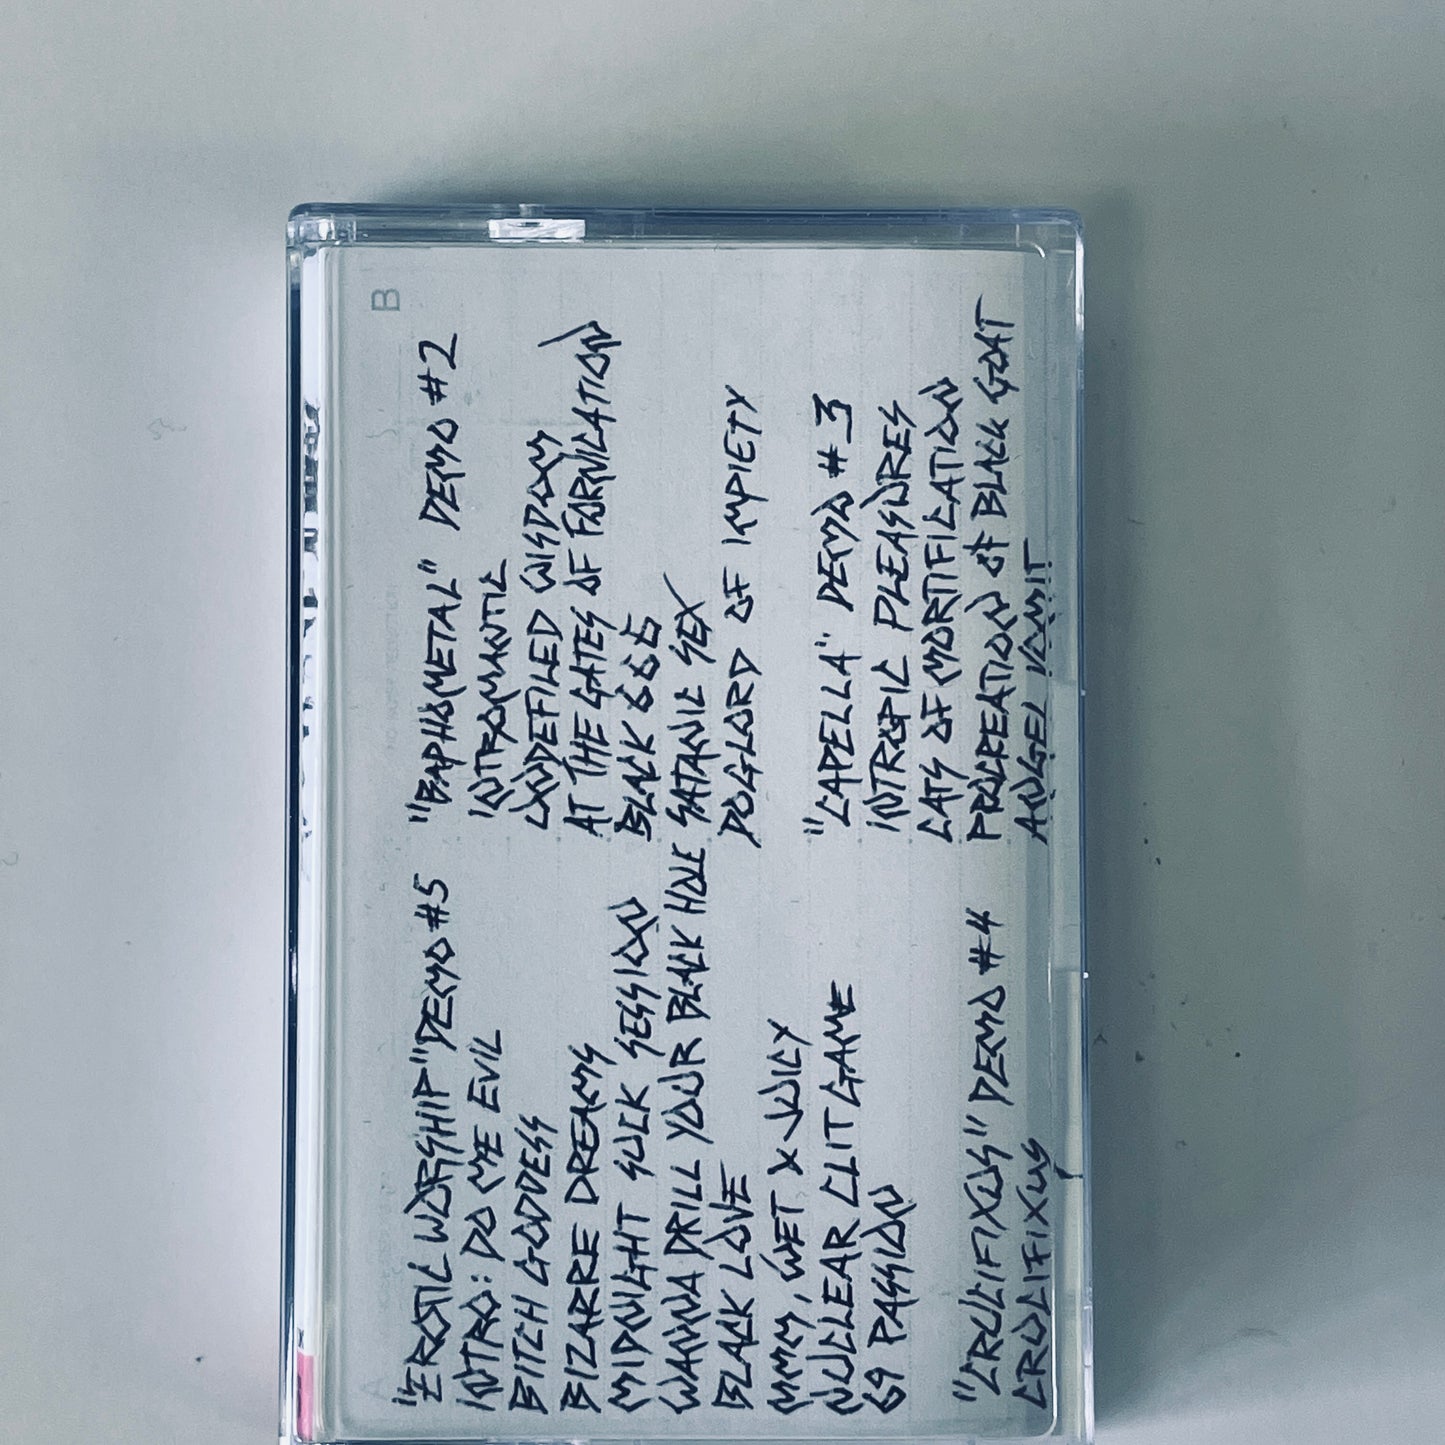 "EROTIC WORSHIP" DEMO #5
INTRO: DO ME EVIL
BITCH GODDESS
BIZARRE DREAMS
MIDNIGHT SUCK SESSION
WANNA DRILL YOUR BLACK HOLE SATANIC SEX
BLACK LOVE
MMM, WET X JUICY
NUCLEAR CLIT GAME
69 PASSION
"CRUCIFIXUS" DEMO #4
CRUCIFIXUS
B
"BAPHOMETAL" DEMO #2
INTROMANTIC
UNDEFILED WISDOM
AT THE GATES OF FORNICATION
BLACK 666
DOGLORD OF IMPIETY
"CAPELLA" DEMO #3
INTROPIC PLEASURES
CATS OF MORTIFICATION
PROCREATION OF BLACK GOAT
ANGEL VOMIT